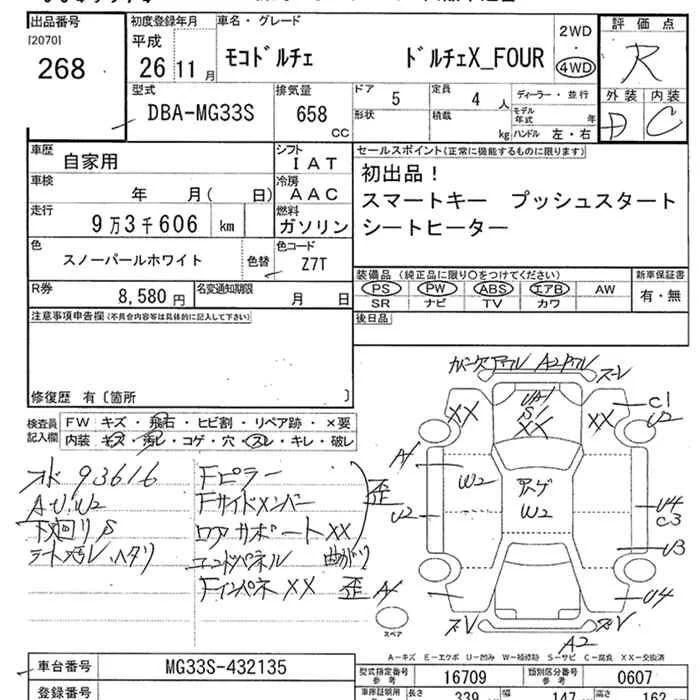 出品番号
[2070]
268
初度登録年月
平成
26 11月
車名・グレード
モコドルチェ ドルチェX_FOUR
2WD
・
4WD
評価点
R
外装 内装
D C
型式
DBA-MG33S
排気量
658
CC
ドア 5
定員 4人
形状
積載 kg
ディーラー・並行
モデル年式 年
ハンドル 左・右
車歴
自家用
車検
年 月( 日)
走行
9万3千606 km
シフト
IAT
冷房
AAC
燃料
ガソリン
セールスポイント(正常に機能するものに限ります)
初出品!
スマートキー プッシュスタート
シートヒーター
色
スノーパールホワイト
色替
色コード
Z7T
R券
8,580円
名変通知期限
月 日
装備品 (純正品に限り○をつけてください)
PS PW ABS エアB AW
SR ナビ TV カワ
新車保証書
有・無
後日品
注意事項申告欄(不具合内容等は具体的に記入して下さい)
修復歴 有〔箇所 〕
検査員記入欄
FW キズ・飛石・ヒビ割・リペア跡・×要
内装 キズ・汚レ・コゲ・穴・スレ・キレ・破レ
メ 93616
A・U・W2
下廻りS
シート汚レ、ハタリ
Fピラー
Fサイドメンバー
ロアサポートXX
エンドパネル 曲がり
FインパネXX 歪
歪
A2
スーレ
XX
UA1
S1
XX
XX
C1
U2
A1
W2
W2
U2
U4
C3
U3
A1
U4
ズV
ズV
A2
スペア
A-キズ E-エクボ U-凹み W-補修跡 S-サビ C-腐食 XX-交換済
車台番号
MG33S-432135
登録番号
型式指定番号
参考
16709
類別区分番号
参考
0607
長さ
339
幅
147
高さ
162